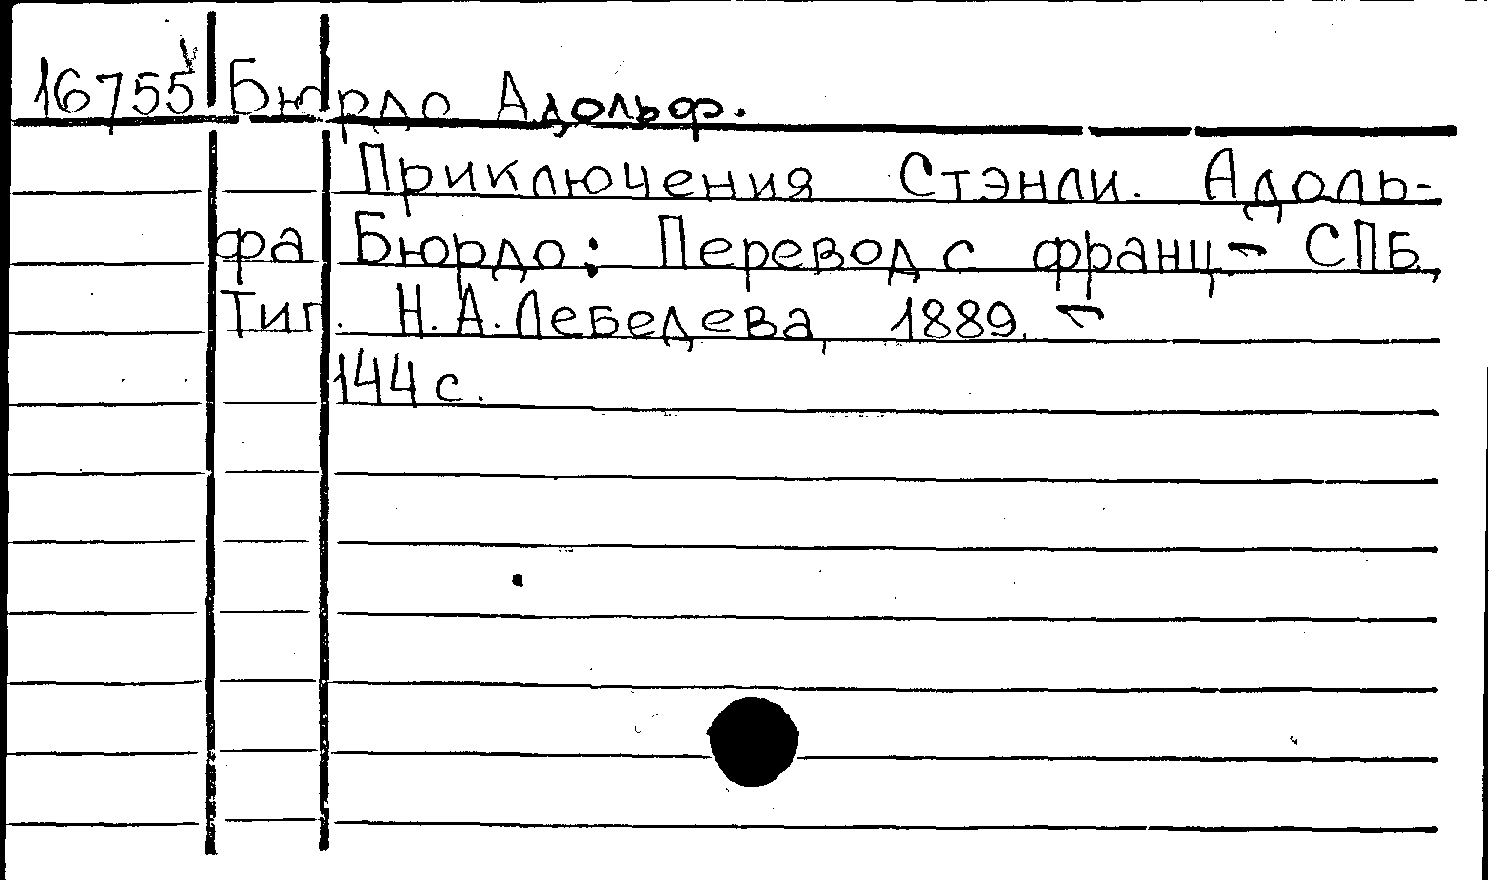 16755 Бюрдо Адольф.
Приключения Стэнли. Адоль-
фа Бюрдо: Перевод с франц. - СПБ,
Тип. Н.А. Лебедева, 1889. -
144 с.